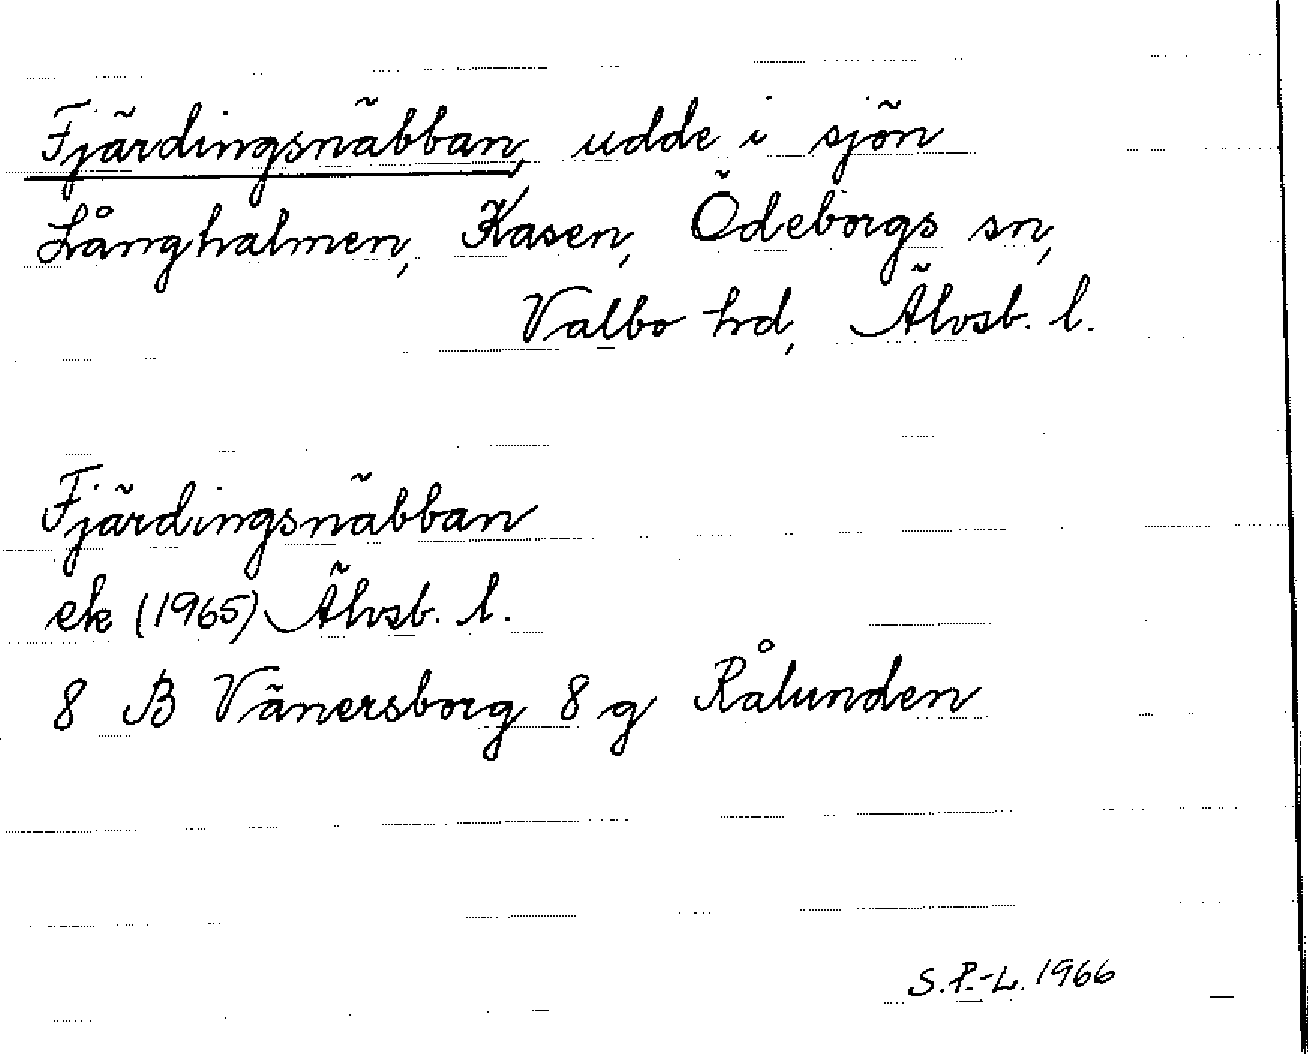 Fjärdingsnäbban, udde i sjön
Långhalmen, Kasen, Ödeborgs sn,
Valbo hd, Älvsb. l.
Fjärdingsnäbban
ek (1965) Älvsb. l.
8 B Vänersborg 8 g Rålunden
S. P.-L. 1966